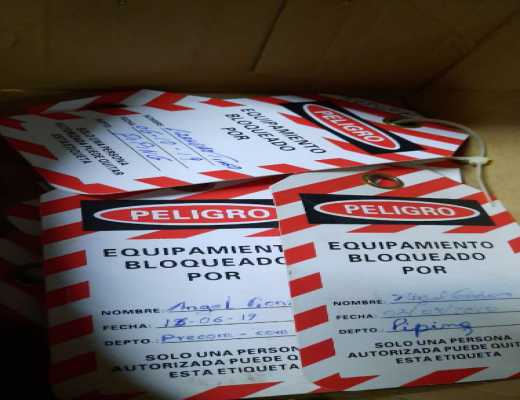 PELIGRO
EQUIPAMIENTO
BLOQUEADO
POR
NOMBRE:
FECHA:
SOLO UNA PERSONA
AUTORIZADA PUEDE QUITAR
ESTA ETIQUETA
PELIGRO
EQUIPAMIENT
BLOQUEADO
POR
NOMBRE: Angel
FECHA: 18-06-19
DEPTO: Precom - com
SOLO UNA PERSON
AUTORIZADA PUEDE Q
ESTA ETIQUETA
PELIGRO
EQUIPAMIENTO
BLOQUEADO
POR
NOMBRE:
FECHA:
DEPTO: Piping
SOLO UNA PERSONA
AUTORIZADA PUEDE QUIT
ESTA ETIQUETA